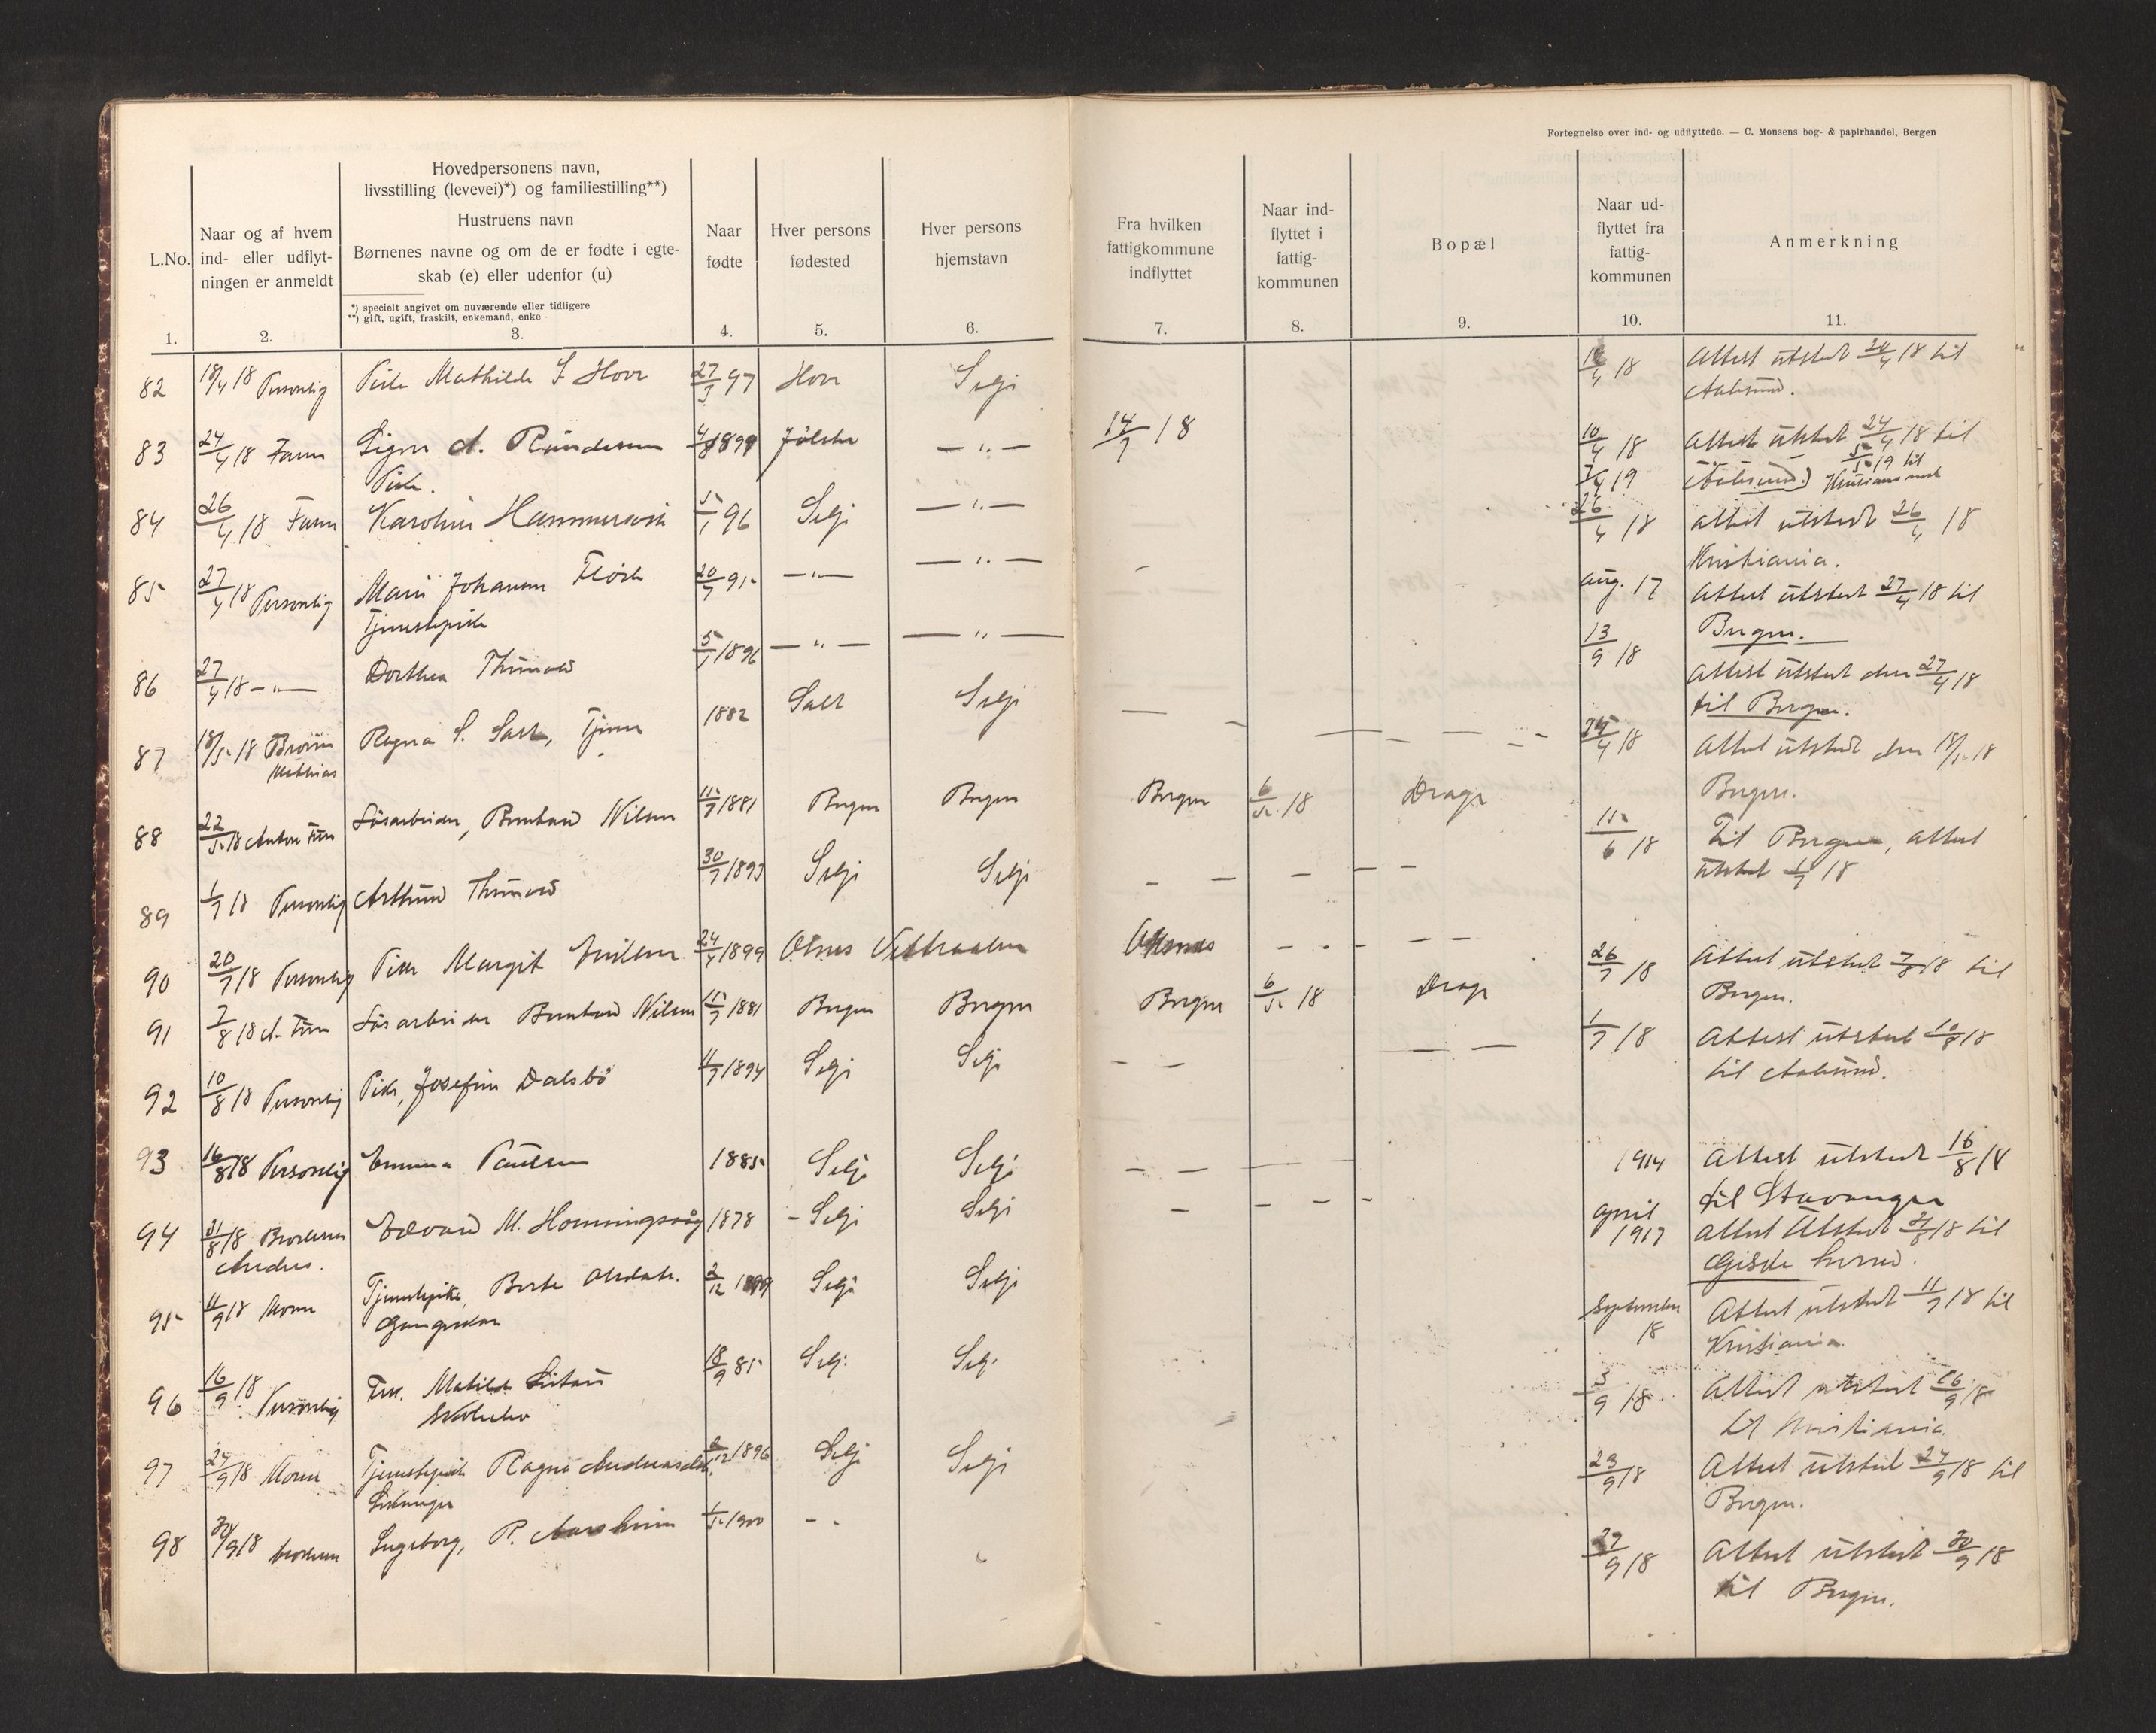 Fortegnelse over ind- og udflyttede. — C. Monsens bog- & papirhandel, Bergen
L.No.
Naar og af hvem
ind- eller udflyt-
ningen er anmeldt
Hovedpersonens navn,
livsstilling (levevei)*) og familiestilling**)
Hustruens navn
Børnenes navne og om de er fødte i egte-
skab (e) eller udenfor (u)
*) specielt angivet om nuværende eller tidligere
**) gift, ugift, fraskilt, enkemand, enke
Naar
fødte
Hver persons
fødested
Hver persons
hjemstavn
Fra hvilken
fattigkommune
indflyttet
Naar ind-
flyttet i
fattig-
kommunen
Bopæl
Naar ud-
flyttet fra
fattig-
kommunen
Anmerkning
1. 2. 3. 4. 5. 6. 7. 8. 9. 10. 11.
82 18/4 18 Personlig Pike Mathilde S Hove 27/3 97 Hove Selje 18 Attest utstedt 24/4 18 til
Aalesund.
83 24/4 18 Faren Signe A. 1899 Jølster — " — 14/7 18 10/4 18 Attest utstedt 24/4 18 til
Pike. 19 19 til
84 26/4 18 Faren Karoline Hammersvik 96 Selje — " — 26/4 18 attest utstedt 26/4 18
Kristiania.
85 27/4 18 Personlig Marie Johanne Flöde 95 — " — — " — aug. 17 Attest utstedt 27/4 18 til
Tjenestepike Bergen.
86 27/4 18 — " — Dorthea 1896 — " — — " — 13/9 18 Attest utstedt den 27/4 18
til Bergen.
87 18/5 18 Broren Ragna S. Salt, Tjener 1882 Salt Selje 18 Attest utstedt den 18/5 18
Mathias Bergen.
88 22/5 18 Anton Løsarbeider, Berntard Nilsen 15/7 1881 Bergen Bergen Bergen 6/5 18 Drage 15/6 18 Til Bergen, attest
utstedt 1/7 18
89 1/7 18 Personlig 30/7 1893 Selje Selje
90 20/7 18 Personlig Pike Margit 24/4 1899 26/7 18 Attest utstedt 7/8 18 til
Bergen.
91 7/8 18 A. Løsarbeider Berntard Nilsen 15/7 1881 Bergen Bergen Bergen 6/5 18 Drage 1/7 18 Attest utstedt 10/8 18
til Aalesund.
92 10/8 18 Personlig Pike, Josefine Dalsbö 1894 Selje Selje
93 16/8 18 Personlig Emma Paulsen 1885 Selje Selje 1914 Attest utstedt 16/8 18
til Stavanger
94 31/8 18 Broderen Edvard M. Honningsvåg 1878 Selje Selje April
1917 attest Utstedt 31/8 18 til
Andreas. Giske herred.
95 11/9 18 Moren Tjenestepike, Berte 12 Selje Selje September
18 Attest utstedt 11/9 18 til
Kristiania.
96 16/9 18 Personlig Frk. Matilde 18/9 85 Selje Selje 3/9 18 Attest utstedt 16/9 18
til Kristiania.
97 24/9 18 Moren Tjenestepike Ragna Andreasdtr. 12 1896 Selje Selje 23/9 18 Attest utstedt 24/9 18 til
Bergen.
98 30/9 18 broderen Ingeborg, P. Aarsheim 1/5 1900 27/9 18 Attest utstedt 30/9 18
til Bergen.